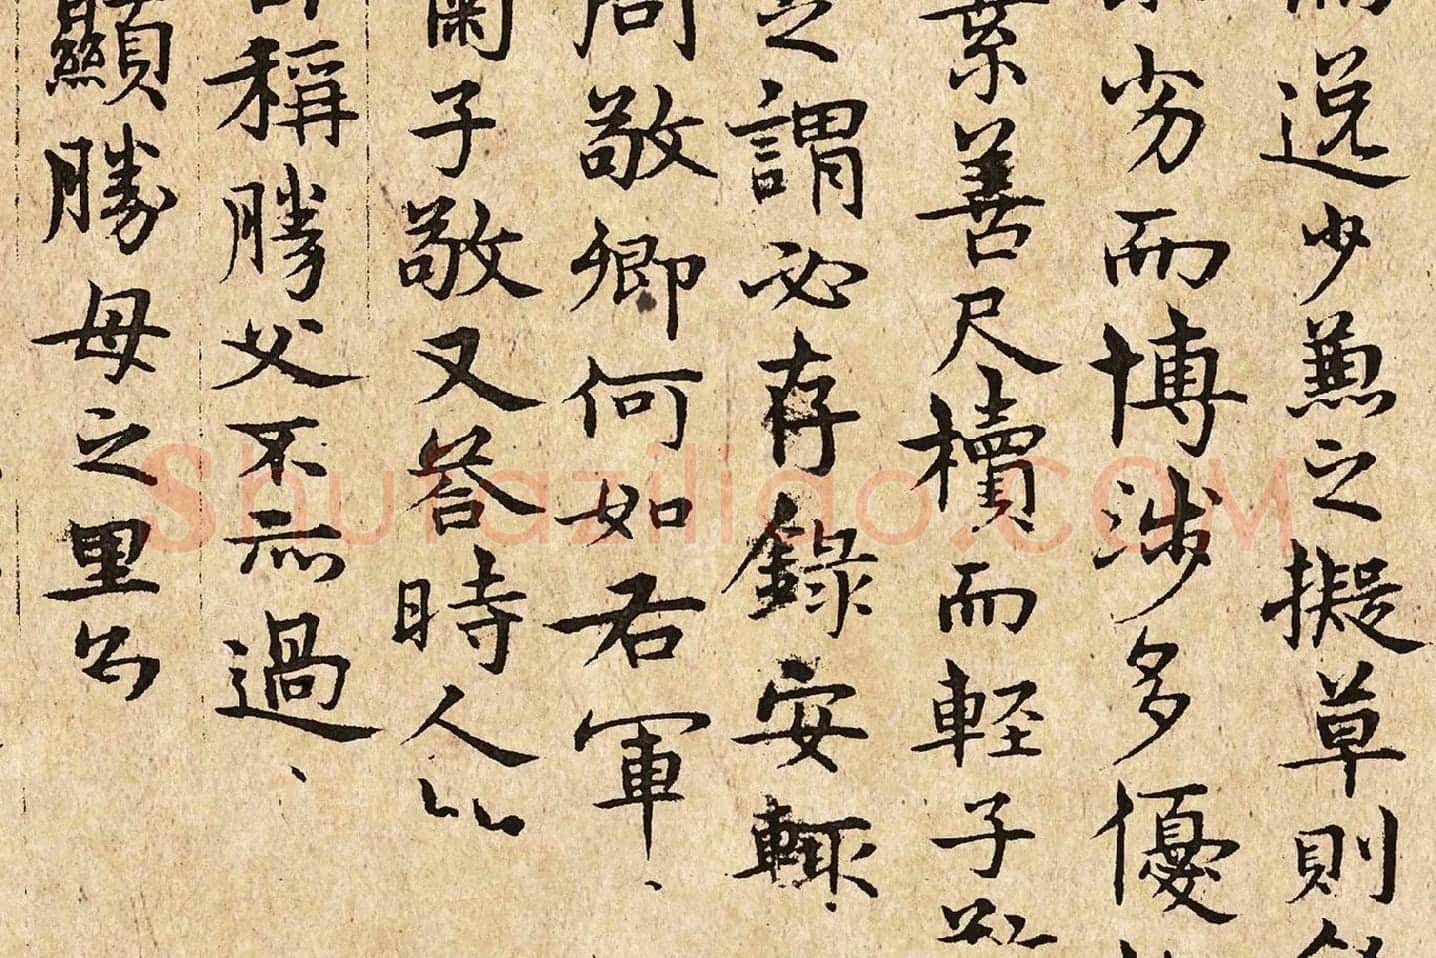 逸少兼之擬草則
劣而博涉多優
業善尺牘而輕子敬
之謂必存錄安輒
問敬卿何如右軍
闌子敬又答時人
稱勝父不亦過
顯勝母之里
shufaziliao.com